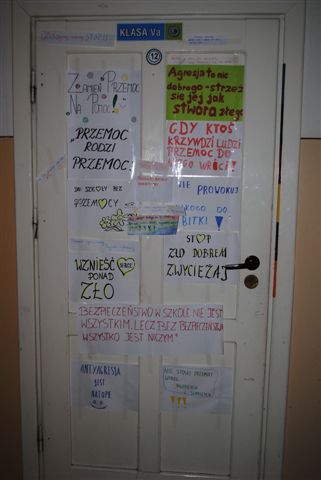 KLASA Va
12
ZAMIEŃ PRZEMOC
NA POMOC
Agresja to nie
dobrego - strzeż
się jej jak
stwora złego
"PRZEMOC
RODZI
PRZEMOC"
GDY KTOŚ
KRZYWDZI LUDZI
PRZEMOC DO
NIEGO WRÓCI!
DO SZKOŁY BEZ
PRZEMOCY
NIE PROWOKUJ
NIKOGO DO
BITKI!
WZNIEŚĆ SERCE
PONAD
ZŁO
STOP
ZŁO DOBREM
ZWYCIĘŻAJ
"BEZPIECZEŃSTWO W SZKOLE NIE JEST
WSZYSTKIM, LECZ BEZ BEZPIECZEŃSTWA
WSZYSTKO JEST NICZYM"
ANTYAGRESJA
JEST
NA TOPIE
NIE STOSUJ PRZEMOCY
WOBEC
!!!